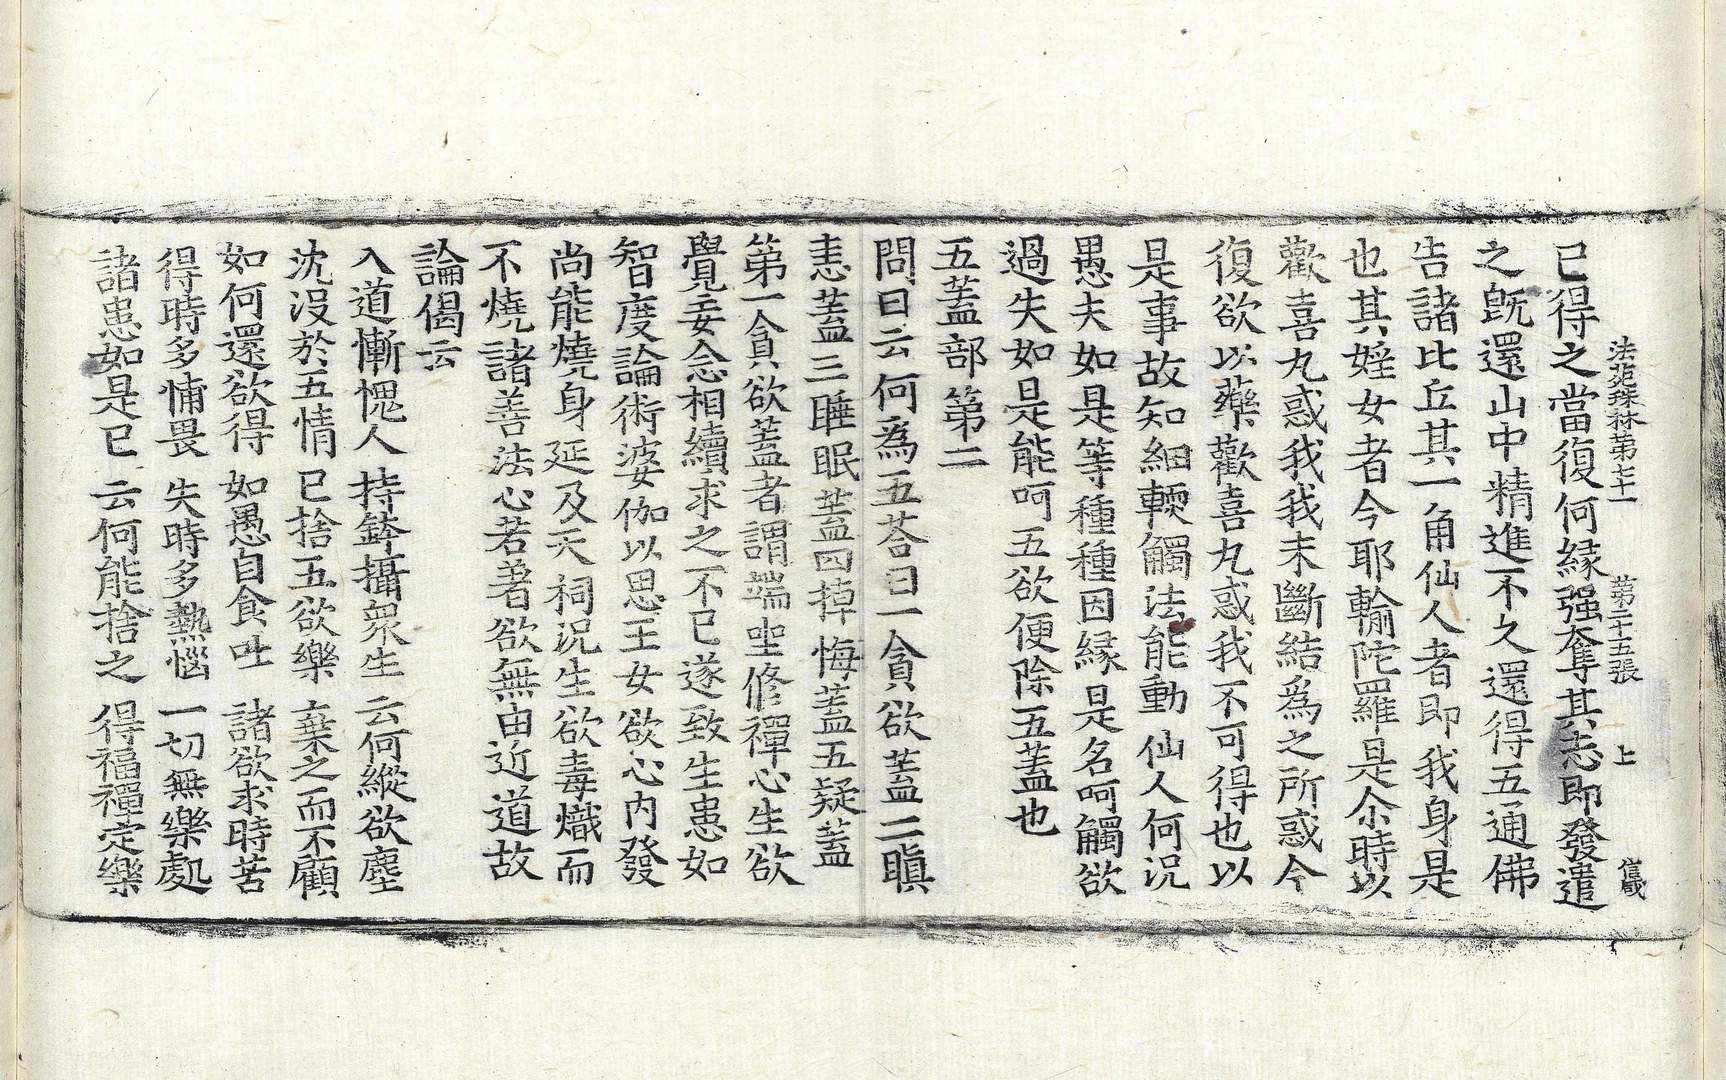 法苑珠林第七十一 第二十五張 上 信成
已得之當復何緣强奪其志即發遣
之旣還山中精進不久還得五通佛
告諸比丘其一角仙人者即我身是
也其婬女者今耶輸陀羅是尒時以
歡喜丸惑我我未斷結爲之所惑今
復欲以藥歡喜丸惑我不可得也以
是事故知細輭觸法能動仙人何況
愚夫如是等種種因緣是名呵觸欲
過失如是能呵五欲便除五蓋也
五蓋部第二
問曰云何爲五荅曰一貪欲蓋二瞋
恚蓋三睡眠蓋四掉悔蓋五疑蓋
第一貪欲蓋者謂端坐修禪心生欲
覺妄念相續求之不已遂致生患如
智度論術婆伽以思王女欲心內發
尚能燒身延及天祠況生欲毒熾而
不燒諸善法心若著欲無由近道故
論偈云
入道慚愧人 持鉢攝衆生 云何縱欲塵
沈沒於五情 已捨五欲樂 棄之而不顧
如何還欲得 如愚自食吐 諸欲求時苦
得時多怖畏 失時多熱惱 一切無樂處
諸患如是已 云何能捨之 得福禪定樂